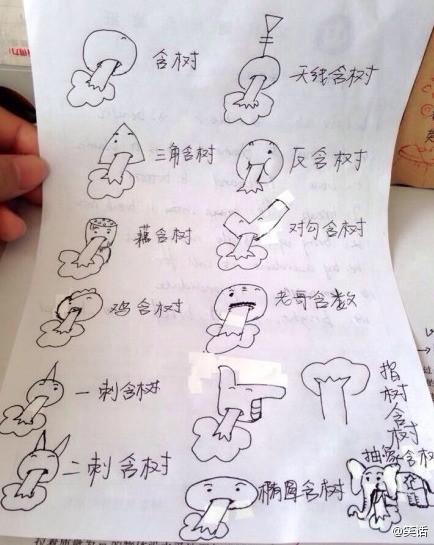 含树
天线含树
三角含树
反含树
藕含树
对勾含树
鸡含树
老哥含数
一刺含树
指树含树
二刺含树
椭圆含树
抽象含树
@笑话